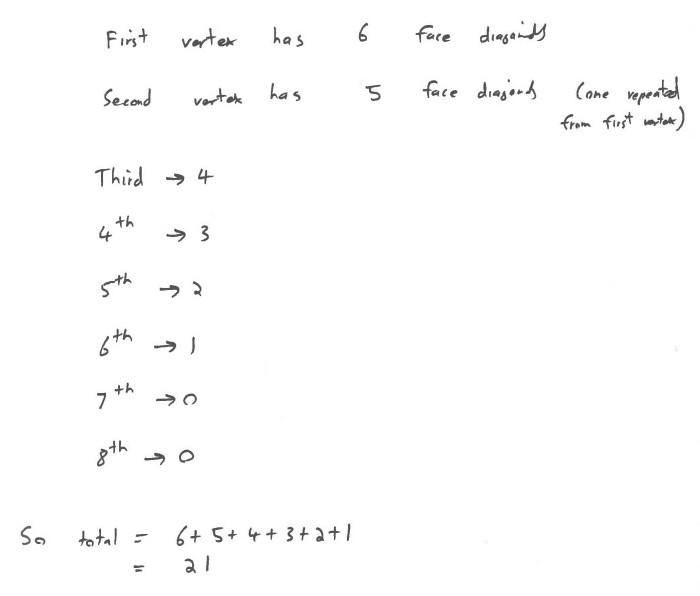 First vertex has 6 face diagonals
Second vertex has 5 face diagonals (one repeated
from first vertex)
Third → 4
4th → 3
5th → 2
6th → 1
7th → 0
8th → 0
So total = 6+5+4+3+2+1
= 21